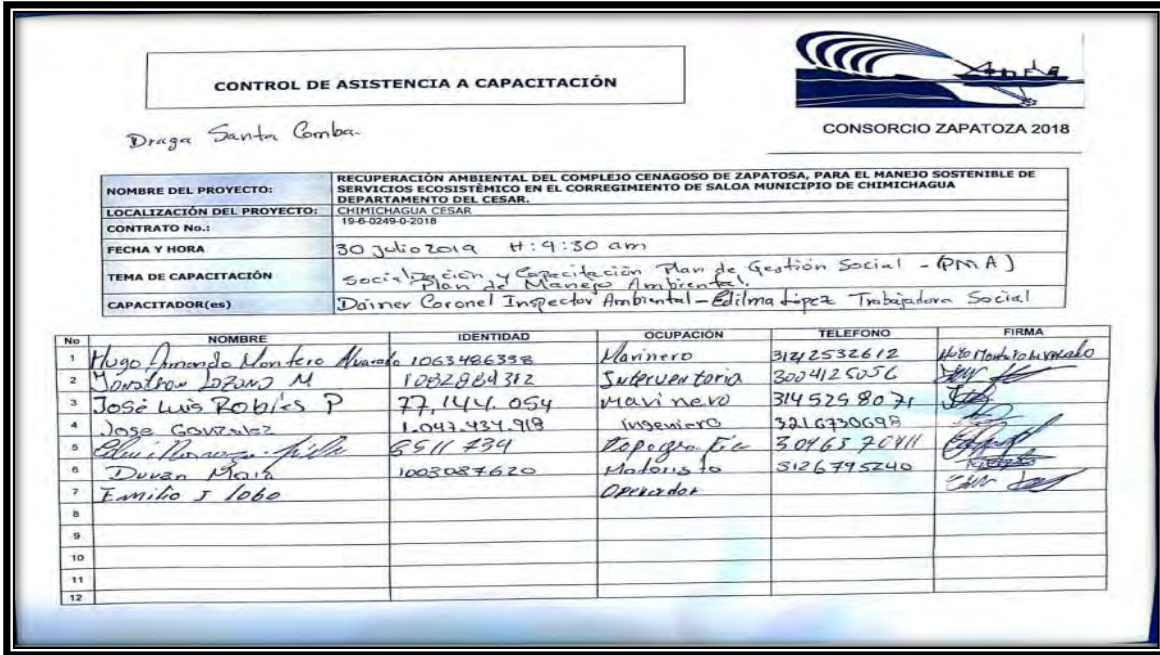 CONTROL DE ASISTENCIA A CAPACITACIÓN
CONSORCIO ZAPATOZA 2018
Draga Santa Comba.
NOMBRE DEL PROYECTO: RECUPERACIÓN AMBIENTAL DEL COMPLEJO CENAGOSO DE ZAPATOSA, PARA EL MANEJO SOSTENIBLE DE
SERVICIOS ECOSISTÈMICO EN EL CORREGIMIENTO DE SALOA MUNICIPIO DE CHIMICHAGUA
DEPARTAMENTO DEL CESAR.
LOCALIZACIÓN DEL PROYECTO: CHIMICHAGUA CESAR
CONTRATO No.: 19-6-0249-0-2018
FECHA Y HORA 30 Julio 2019 H: 9:30 am
TEMA DE CAPACITACIÓN Socialización y Capacitación Plan de Gestión Social - (PMA)
Plan de Manejo Ambiental.
CAPACITADOR(es) Dainer Coronel Inspector Ambiental - Edilma López Trabajadora Social
No NOMBRE IDENTIDAD OCUPACIÓN TELEFONO FIRMA
1 Hugo Armando Montero Alvarado 1063486398 Marinero 3121253612 Hugo Montero Alvarado
2 Jonathan Lozano M 1082984312 Interventoria 3004125056
3 José Luis Robles P 77,144.054 marinero 3145298071
4 Jose Gonzalez 1.047.434.918 Ingeniero 3216730698
5 6511734 3046370411
6 Duvan Maria 1003087620 Motorista 3126795240
7 Emilio J lobo Operador
8
9
10
11
12